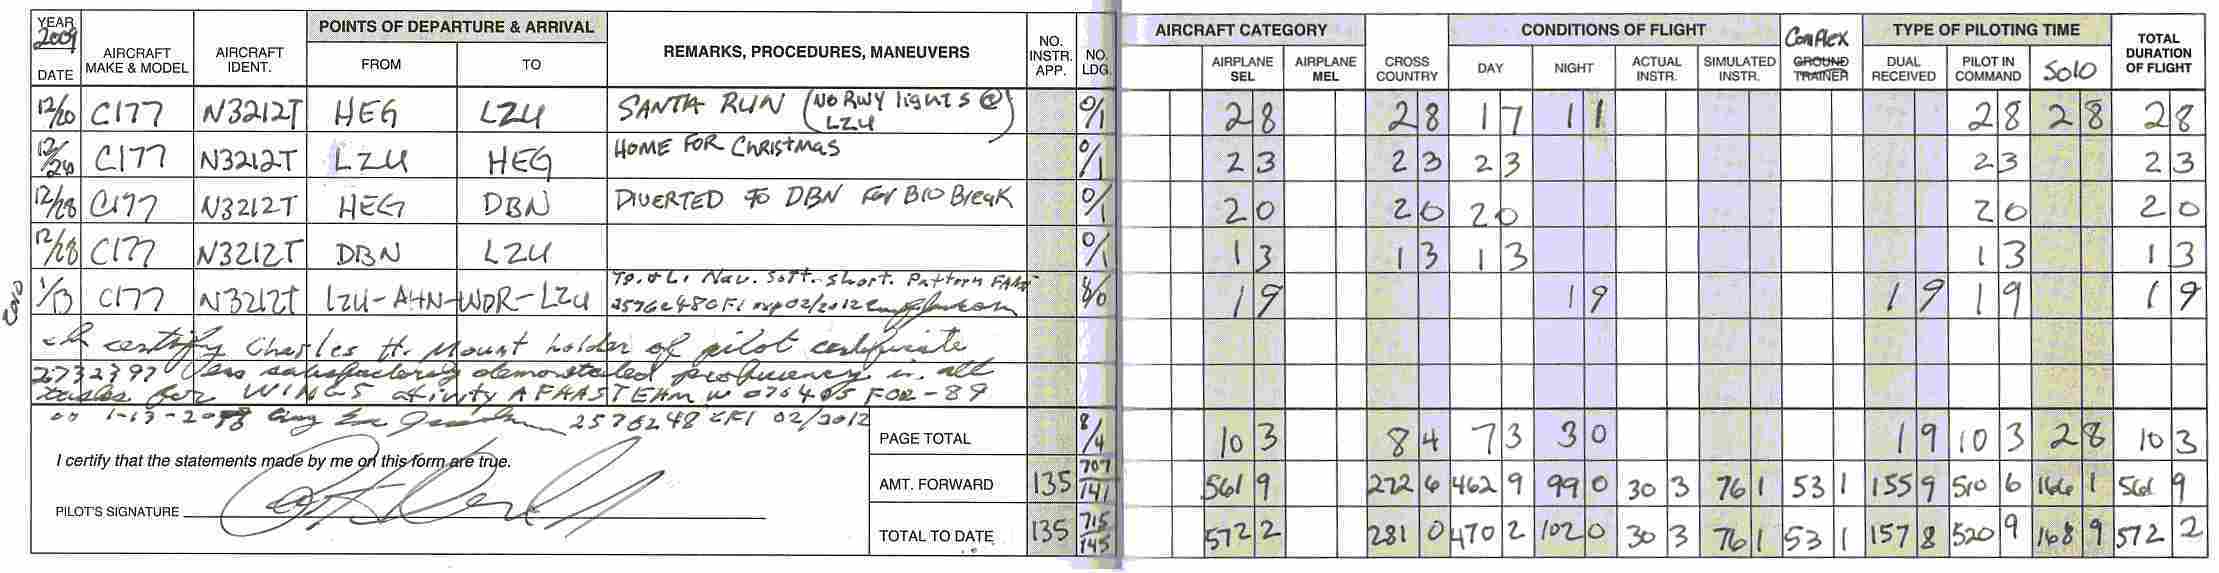 YEAR 2009 DATE AIRCRAFT MAKE & MODEL AIRCRAFT IDENT. POINTS OF DEPARTURE & ARRIVAL FROM TO REMARKS, PROCEDURES, MANEUVERS NO. INSTR. APP. NO. LDG. AIRCRAFT CATEGORY AIRPLANE SEL AIRPLANE MEL CROSS COUNTRY CONDITIONS OF FLIGHT DAY NIGHT ACTUAL INSTR. SIMULATED INSTR. COMPLEX GROUND TRAINER TYPE OF PILOTING TIME DUAL RECEIVED PILOT IN COMMAND SOLO TOTAL DURATION OF FLIGHT
12/20 C177 N3212T HEG LZU SANTA RUN (NO RWY lights @ LZU) 0/1 2 8 2 8 1 7 1 1 2 8 2 8 2 8
12/24 C177 N3212T LZU HEG HOME FOR Christmas 0/1 2 3 2 3 2 3 2 3 2 3
12/28 C177 N3212T HEG DBN DIVERTED TO DBN For BIO Break 0/1 2 0 2 0 2 0 2 0 2 0
12/28 C177 N3212T DBN LZU 0/1 1 3 1 3 1 3 1 3 1 3
1/13 C177 N3212T LZU-AHN-WDR-LZU To. & L. Nav. Soft. Short. Pattern 8/0 1 9 1 9 1 9 1 9 1 9
2576248 CFI exp 02/2012
certify Charles H. Mount holder of pilot certificate
2732397 has satisfactorily demonstrated proficiency in all
tasks for WINGS
on 1-13- 2576248 CFI 02/2012
PAGE TOTAL 8/4 10 3 8 4 7 3 3 0 1 9 10 3 2 8 10 3
I certify that the statements made by me on this form are true.
AMT. FORWARD 135 707/141 561 9 272 6 462 9 99 0 30 3 76 1 53 1 155 9 510 6 166 1 561 9
PILOT'S SIGNATURE
TOTAL TO DATE 135 715/145 572 2 281 0 470 2 102 0 30 3 76 1 53 1 157 8 520 9 168 9 572 2